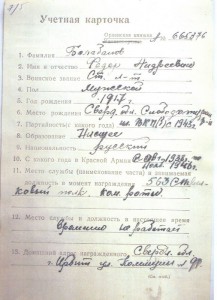 Учетная карточка
Орденская книжка № 665376
1. Фамилия Балабанов
2. Имя и отчество Андреевич
3. Воинское звание Ст. л-т
4. Пол Мужской
5. Год рождения 1917 г.
6. Место рождения Сверд. обл.
7. Партийность чл. ВКП(б) с 1943 г.
8. Образование Низшее
9. Национальность русский
10. С какого года в Красной Армии с 1938
по 1946 г.
11. Место службы (наименование части) и занимаемая
должность в момент награждения 563
ковый полк, ком. роты
12. Место службы и должность в настоящее время
временно не работает
13. Домашний адрес награжденного Свердл. обл.
г. Ирбит ул.